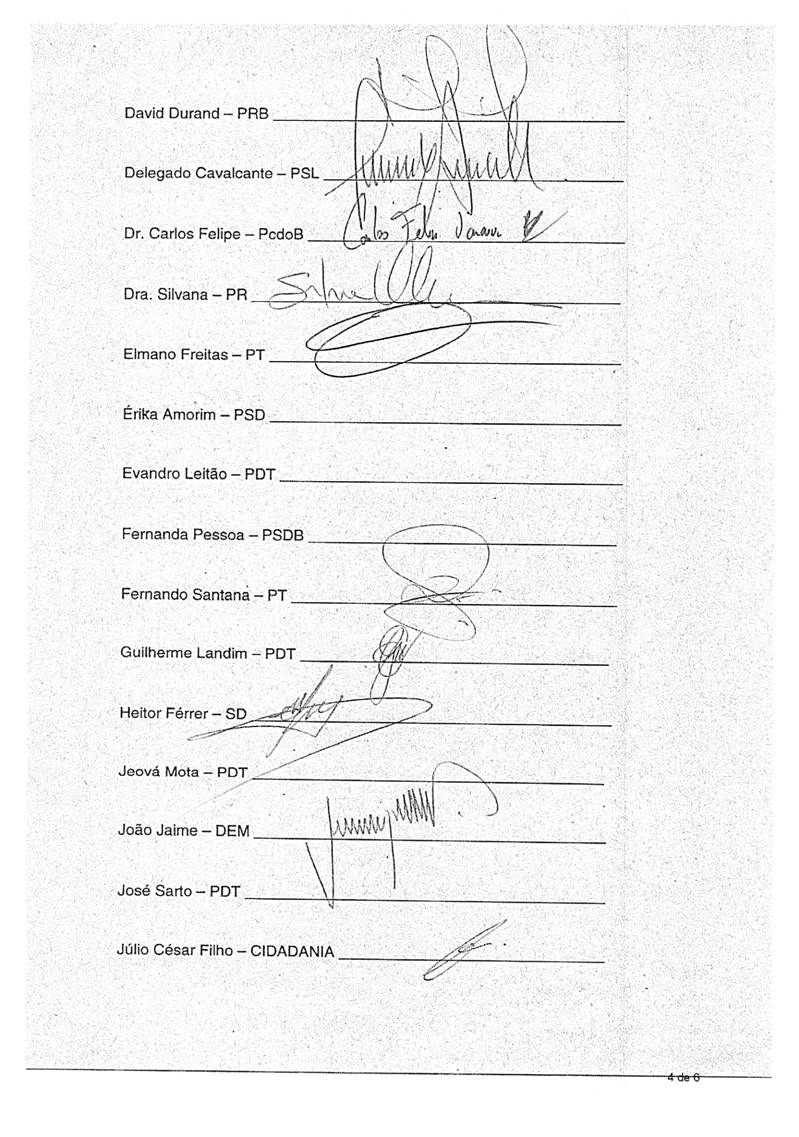 David Durand – PRB
Delegado Cavalcante – PSL
Dr. Carlos Felipe – PcdoB Carlos Felipe
Dra. Silvana – PR Silvana
Elmano Freitas – PT
Érika Amorim – PSD
Evandro Leitão – PDT
Fernanda Pessoa – PSDB
Fernando Santana – PT
Guilherme Landim – PDT
Heitor Férrer – SD
Jeová Mota – PDT
João Jaime – DEM
José Sarto – PDT
Júlio César Filho – CIDADANIA
4 de 6